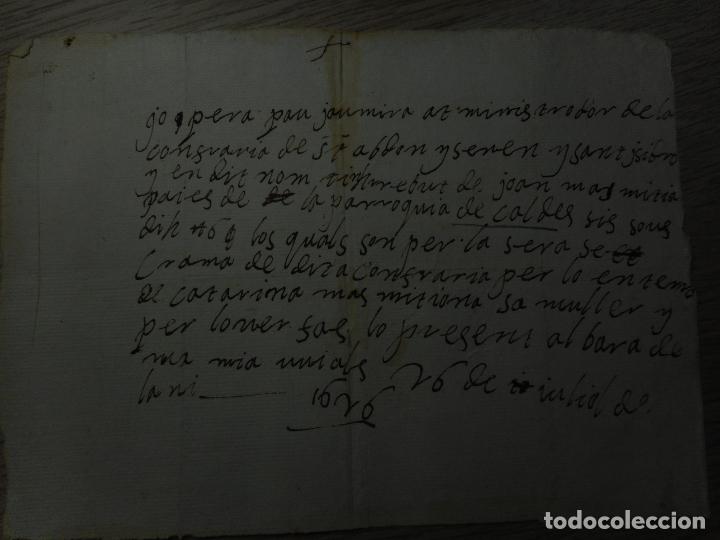 jo pera pau jaumira atministrador de la
confraria de St abdon y senen y sant jsidro
y en dit nom tinch rebut de joan mas mitia
paies de la parroquia de caldes sis sous
dih 6 los quals son per la sera se
crema de dita confraria per lo enterro
de catarina mas mitiana sa muller y
per lo ver fas lo present albara de
ma mia vui als
la ni 1626 26 de juliol de
todocoleccion.net